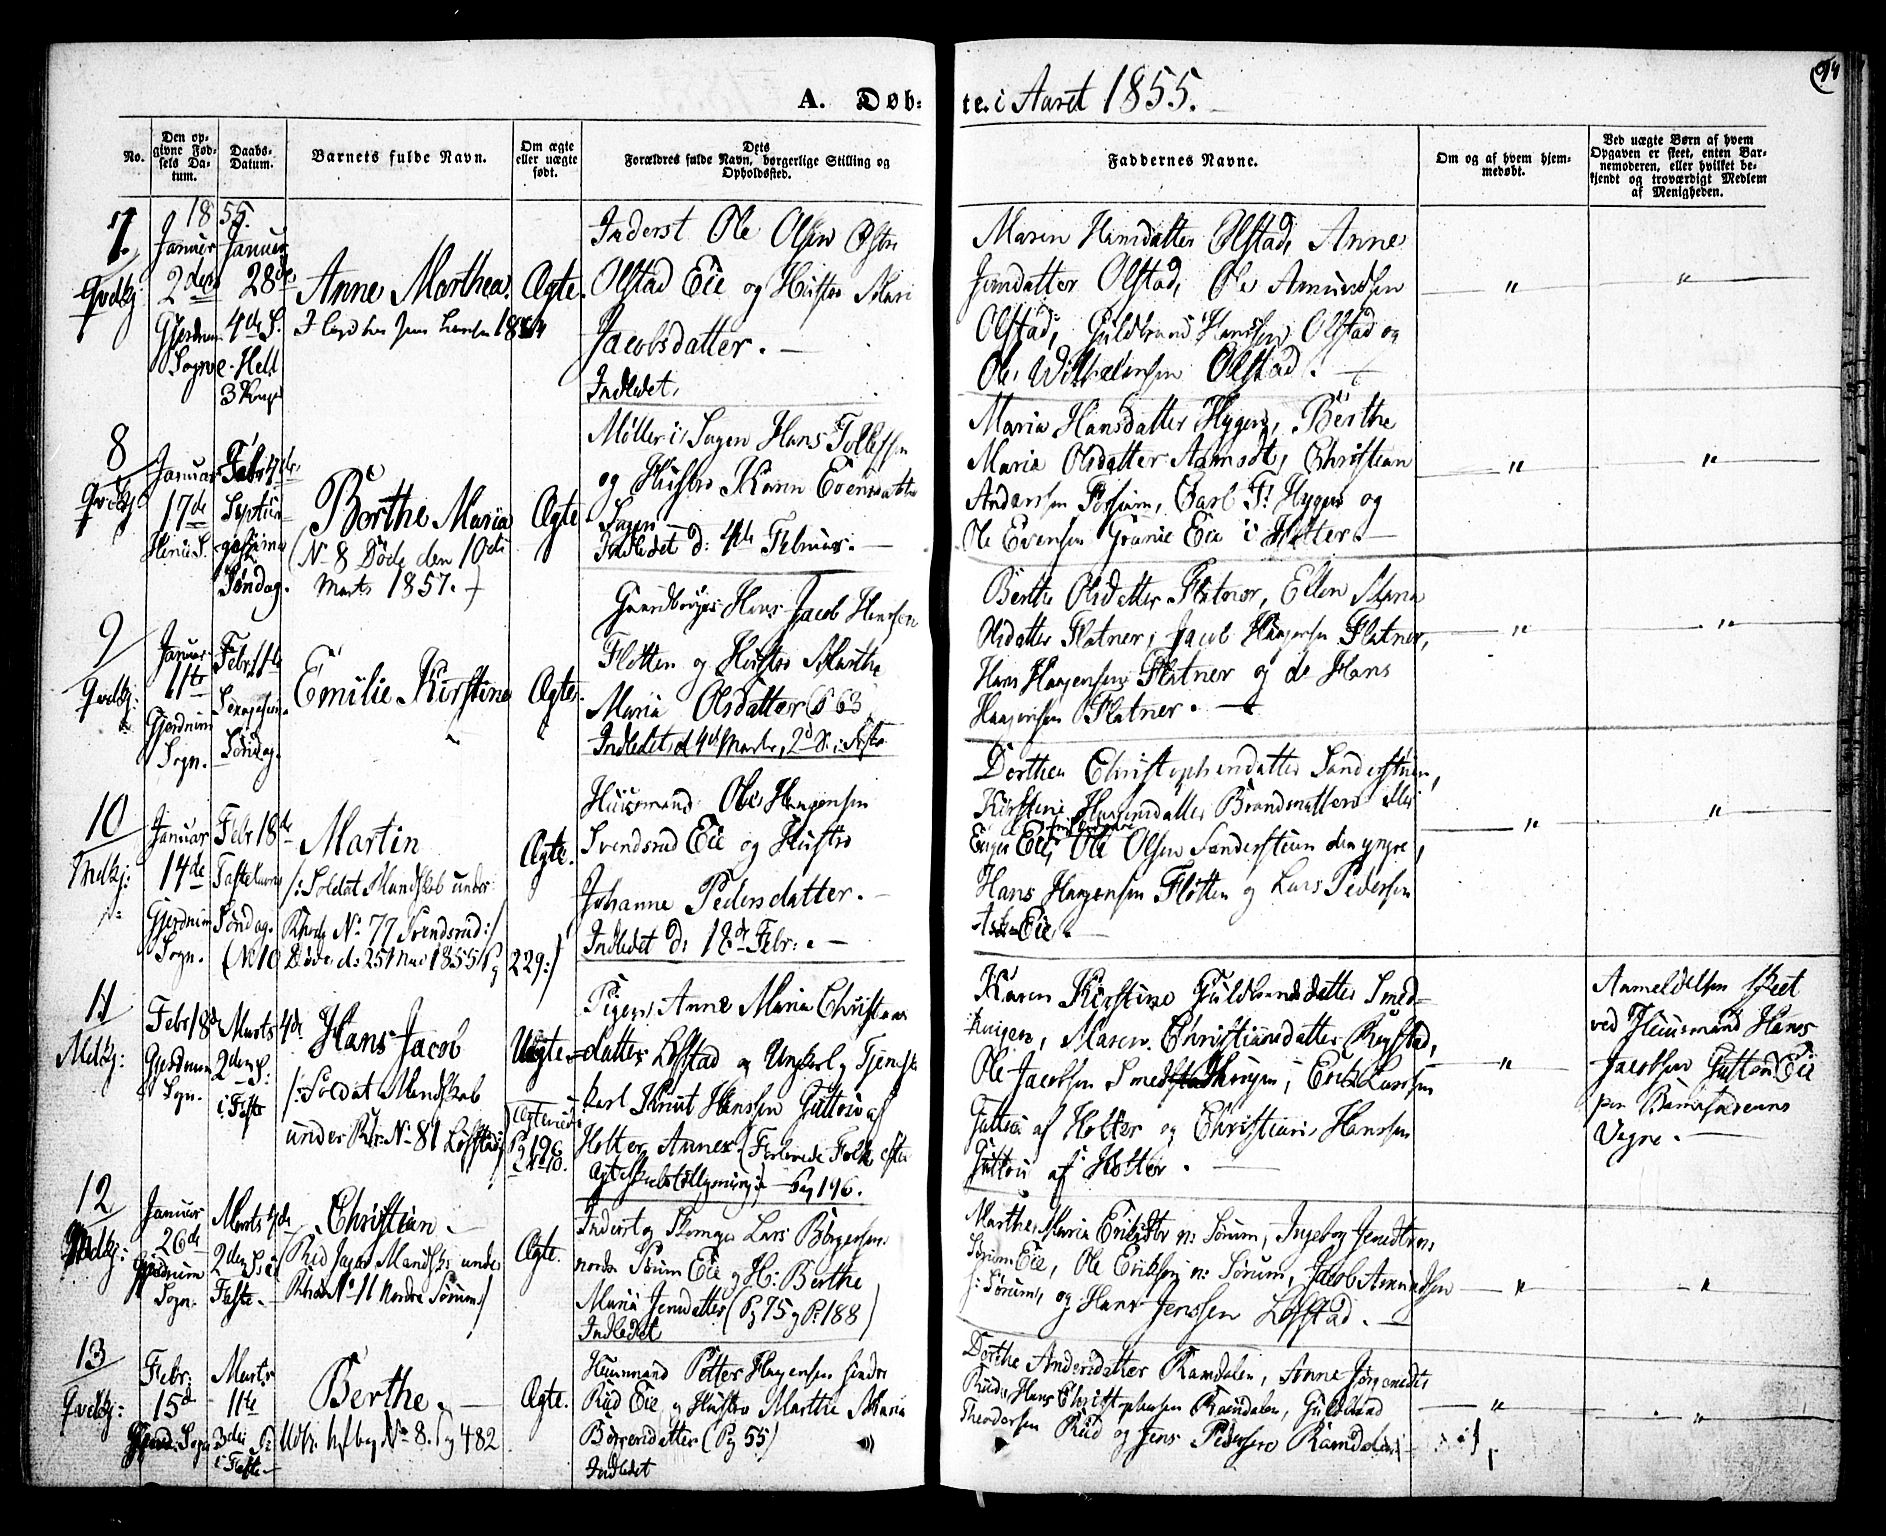 94
A. Døb-te. i Aaret 1855.
No.
Den op-
givne Fød-
sels Da-
tum.
Daabs-
Datum.
Barnets fulde Navn.
Om ægte
eller uægte
født.
Dets
Forældres fulde Navn, borgerlige Stilling og
Opholdssted.
Faddernes Navne.
Om og af hvem hjem-
medøbt.
Ved uægte Børn af hvem
Opgaven er skeet, enten Bar-
nemoderen, eller hvilket be-
kjendt og troværdigt Medlem
af Menigheden.
1855.
7.
Qvdkj
Januar
2den
Gjerdrum
Sogn
Januar
28de
4de S.
e. Hell
3 Konger
Anne Marthea.
Ægte.
Inderst Ole Olsen Østre
Olstad Eie og Hustro Mari
Jacobsdatter. —
Indledet.
Maren Hansdatter Olstad, Anne
Jensdatter Olstad, Ole Amundsen
Olstad, Guldbrand Hansen Olstad og
Ole Wilhelmsen Olstad. —
"
"
8
Qvdkj
Januar
17de
Febr 4de
Septua-
gesima
Søndag.
Berthe Maria
(No 8 Døde den 10de
Marts 1857.)
Ægte
Møller i Sagen Hans Tollefsen
og Hustro Karen Evensdatter
Sagen —
Indledet d: 4de Februar. —
Maria Hansdatter Hygen, Berthe
Maria Olsdatter Aamodt, Christian
Andersen, Carl F. Hygen og
Ole Evensen Eie i Holter —
"
"
9
Qvdkj:
Januar
11te
Gjerdrum
Sogn.
Febr 11te
Sexagesima
Søndag.
Emilie Kirstine
Ægte
Gaardbruger Hans Jacob Hansen
Flotten og Hustro Marthe
Maria Olsdatter (P 63
Indledet d 4de Marts, 2d S. i Faste
Berthe Olsdatter Flatner, Ellen Maria
Olsdatter Flatner, Jacob Haagensen Flatner,
Hans Haagensen Flatner og de Hans
Haagensen Flatner. —
"
"
10
Mdkj:
Januar
14de
Gjerdrum
Sogn.
Febr 18de
Fastelavns
Søndag.
Martin
/: Soldat Mandskab under
No 77 Svendsrud :/
(No 10 Døde d: 25 Mai 1855 Pg 229 :)
Ægte.
Huusmand Ole Haagensen
Svendsrud Eie og Hustro
Johanne Pedersdatter. —
Indledet d: 18de Febr: —
Dorthea Christophersdatter
Kirstine Hansdatter
Eie, Ole Olsen den yngre,
Hans Haagensen Flotten og Lars Pedersen
Ask Eie. —
"
"
11
Mdkj:
Febr 18de
Gjerdrum
Sogn.
Marts 4de
2den S:
i Faste
Hans Jacob
/: Soldat Mandskab
under No 81 Løfstad :/
Uægte
Pg 196
No 10.
Pigen Anne Maria Christians
datter Løfstad og Ungkarl og Tjeneste
karl Knut Hansen Guttou af
Holter Annex (Forlovede Folk efter
Ægteskabs tillysning :) Pag 196.
Karen Kirstine Guldbrandsdatter Smed-
stuigen, Maren Christiansdatter Rystad,
Ole Jacobsen, Erik Larsen
Guttou af Holter og Christian Hansen
Guttou af Holter. —
"
Anmeldelsen skeet
ved Huusmand Hans
Jacobsen Guttou Eie
paa Barnefaderens
Vegne. —
12
Mdkj:
Januar
26de
Gjerdrum
Sogn.
Marts 4de
2den S. i
Faste. —
Christian. —
Mandsk: under
No 11 Nordre Sørum :/
Ægte.
Inderst og Skomager Lars Børgersen
nordre Sørum Eie og H: Berthe
Maria Jensdatter (Pg 75 og P: 188)
Indledet
Marthe Maria Eriksdtr n: Sørum, Ingeborg Jensdtr n:
Sørum Eie, Ole Eriksen n: Sørum, Jacob Amundsen
s: Sørum, og Hans Jensen Løfstad. —
"
"
13
Qvdkj:
Febr:
15de
Gjerd. Sogn
Marts
11te
3die S:
i Faste —
Berthe. —
No 8. Pg 482
Ægte.
Huusmand Petter Haagensen søndre
Rud Eie og Hustro Marthe Maria
Børresdatter (Pg 55)
Indledet
Dorthe Andersdatter Ramdalen, Anne Jørgensdtr
Rud, Hans Christophersen Ramdalen, Guldbrand
Theodorsen Rud og Jens Pedersen Ramdalen —
"
"